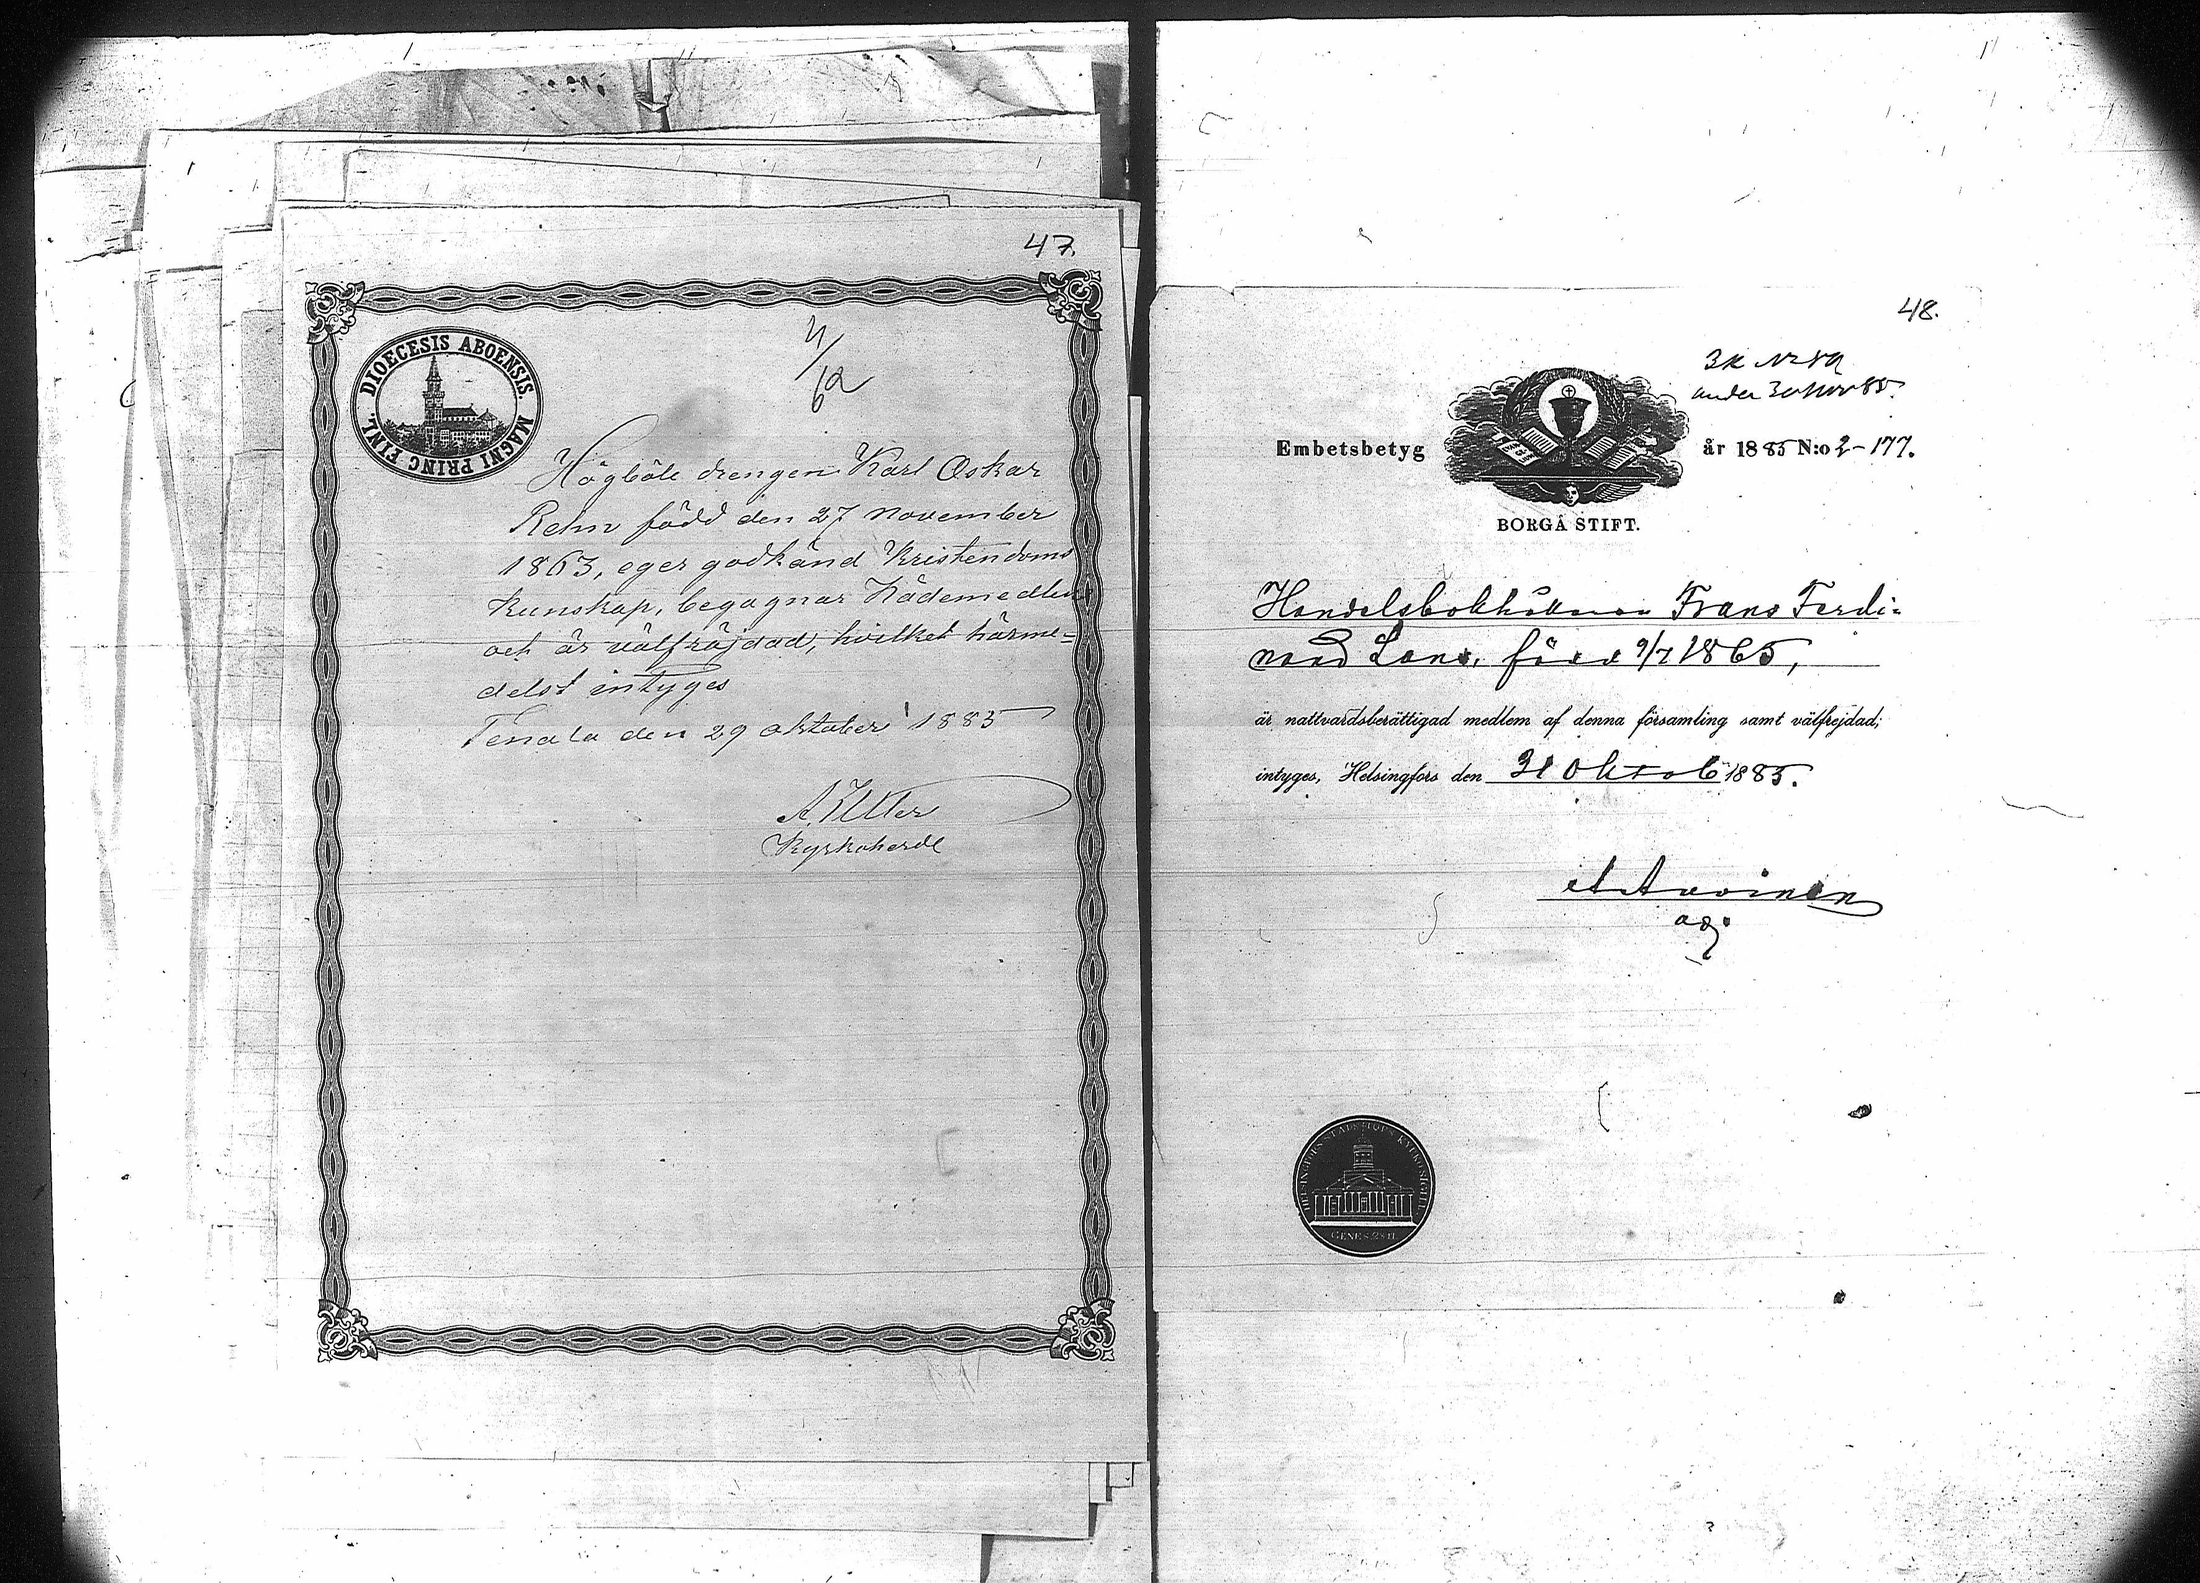 47.
DIOECESIS ABOENSIS. MAGNI PRINC FINL.
Högböle drengen Karl Oskar
Rehn född den 27 november
1863, eger godkänd Kristendoms
kunskap, begagnar Nådemedlen
och är välfräjdad, hvilket härme=
delst intyges
Tenala den 29 oktober 1885
Kyrkoherde
48.
Embetsbetyg
år 1885 N:o 2-177.
BORGÅ STIFT.
Handelsbokhållaren Frans Ferdi=
nand född 9/7 1865,
är nattvardsberättigad medlem af denna församling samt välfrejdad;
intyges, Helsingfors den 31 Oktob 1885.
HELSINGFORS STADS KYRKOSIGILL.
GENES 28.17.